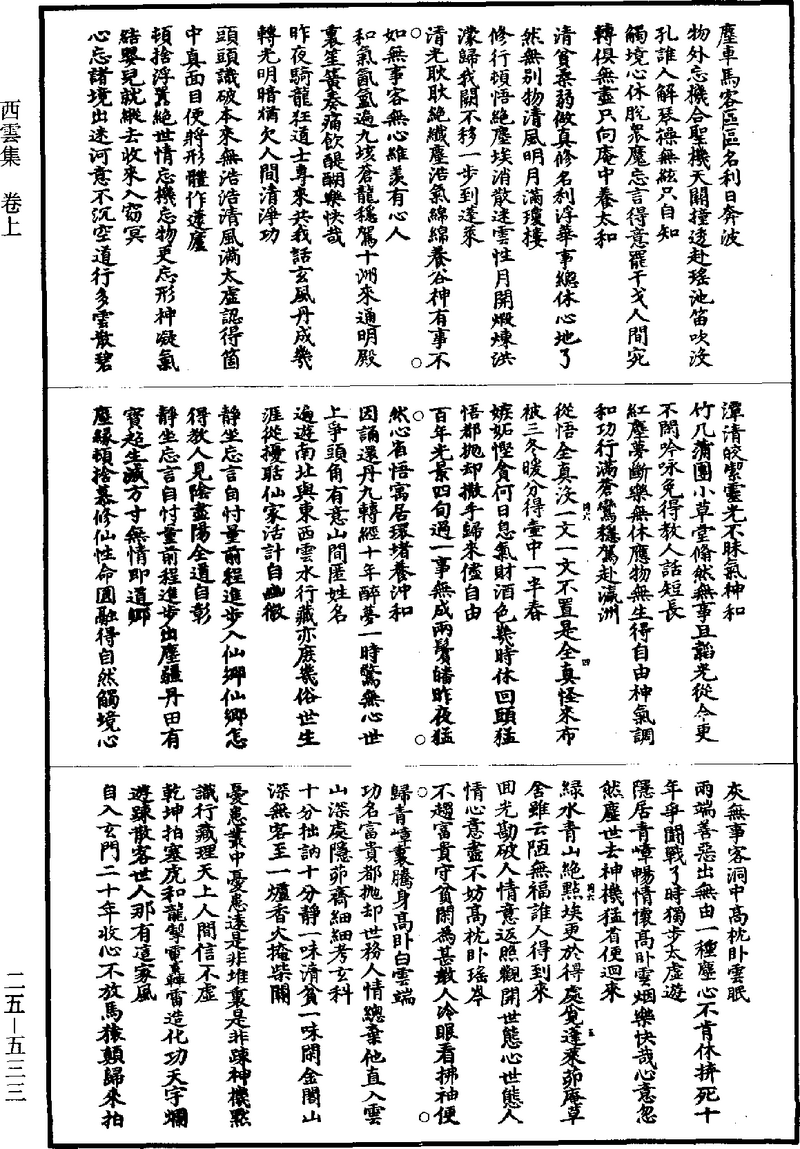 西雲集　卷上
塵車馬客區區名利日奔波
物外忘機合聖機天關撞透赴瑤池笛吹沒
孔誰人解琴操無絃只自知
觸境心休脫眾魔忘言得意罷干戈人間宛
轉俱無盡只向庵中養太和
清貧柔弱做真修名利浮華事總休心地了
然無別物清風明月滿瓊樓
修行頓悟絕塵埃消散迷雲性月開煅煉洪
濛歸我闕不移一步到蓬萊
清光耿耿絕纖塵浩氣綿綿養谷神有事不
如無事客無心維羨有心人
和氣氤氳遍九垓蒼龍穩駕十洲來通明殿
裏笙簧奏痛飲醍醐樂快哉
昨夜騎龍狂道士專來共我話玄風丹成幾
轉光明暗猶欠人間清淨功
頭頭識破本來無浩浩清風滿太虛認得箇
中真面目便將形體作蘧廬
頓捨浮囂絕世情忘機忘物更忘形神凝氣
結嬰兒就縱去收來入窈冥
心忘諸境出迷河意不沉空道行多雲散碧
潭清皎潔靈光不昧氣神和
竹几蒲團小草堂翛然無事且韜光從今更
不閑吟詠免得教人話短長
紅塵夢斷樂無休應物無生得自由神氣調
和功行滿蒼鸞穩駕赴瀛洲
從悟全真沒一文一文不置是全真怪來布
被三冬暖分得壺中一半春
嫉妬慳貪何日息氣財酒色幾時休回頭猛
悟都拋却撒手歸來儘自由
百年光景四旬過一事無成兩鬢皤昨夜猛
然心省悟寓居環堵養沖和
因誦還丹九轉經十年醉夢一時驚無心世
上爭頭角有意山間匿姓名
遍遊南北與東西雲水行藏亦庶幾俗世生
涯從擾聒仙家活計自幽微
靜坐忘言自忖量前程進步入仙鄉仙鄉怎
得教人見陰盡陽全道自彰
靜坐忘言自忖量前程進步出塵疆丹田有
寶超生滅方寸無情即道鄉
塵緣頓捨慕修仙性命圓融得自然觸境心
灰無事客洞中高枕臥雲眠
兩端善惡出無由一種塵心不肯休拚死十
年爭鬪戰了時獨步太虛遊
隱居青嶂暢情懷高臥雲烟樂快哉心意忽
然塵世去神機猛省便迴來
綠水青山絕點埃更於何處覓蓬萊茆庵草
舍雖云陋無福誰人得到來
回光勘破人情意返照觀開世態心世態人
情心意盡不妨高枕臥瑤岑
不趨富貴守貧閑為甚教人冷眼看拂袖便
歸青嶂裏騰身高臥白雲端
功名富貴都拋却世務人情總棄他直入雲
山深處隱茆齋細細考玄科
十分拙訥十分靜一味清貧一味閑金闇山
深無客至一爐香火掩柴關
憂患叢中憂患遠是非堆裏是非疎神機點
識行藏理天上人間信不虛
乾坤拍塞虎和龍掣電轟雷造化功天宇爛
遊疎散客世人那有這家風
自入玄門二十年收心不放馬猿顛歸來拍
二五—五三三